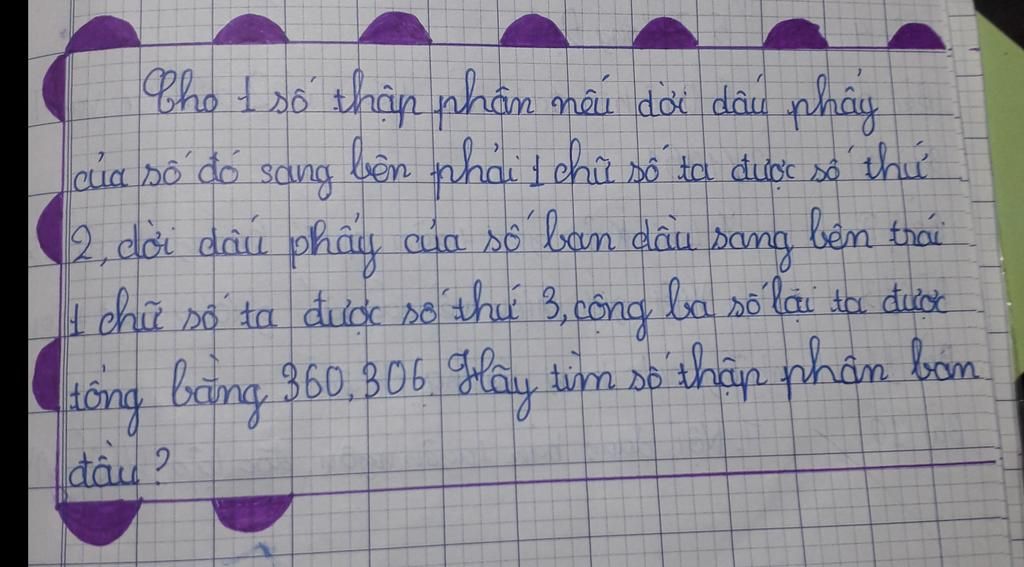 Cho 1 số thập phân nếu dời dấu phẩy
của số đó sang bên phải 1 chữ số ta được số thứ
2, dời dấu phẩy của số ban đầu sang bên trái
1 chữ số ta được số thứ 3, cộng ba số lại ta được
tổng bằng 360,306. Hãy tìm số thập phân ban
đầu?